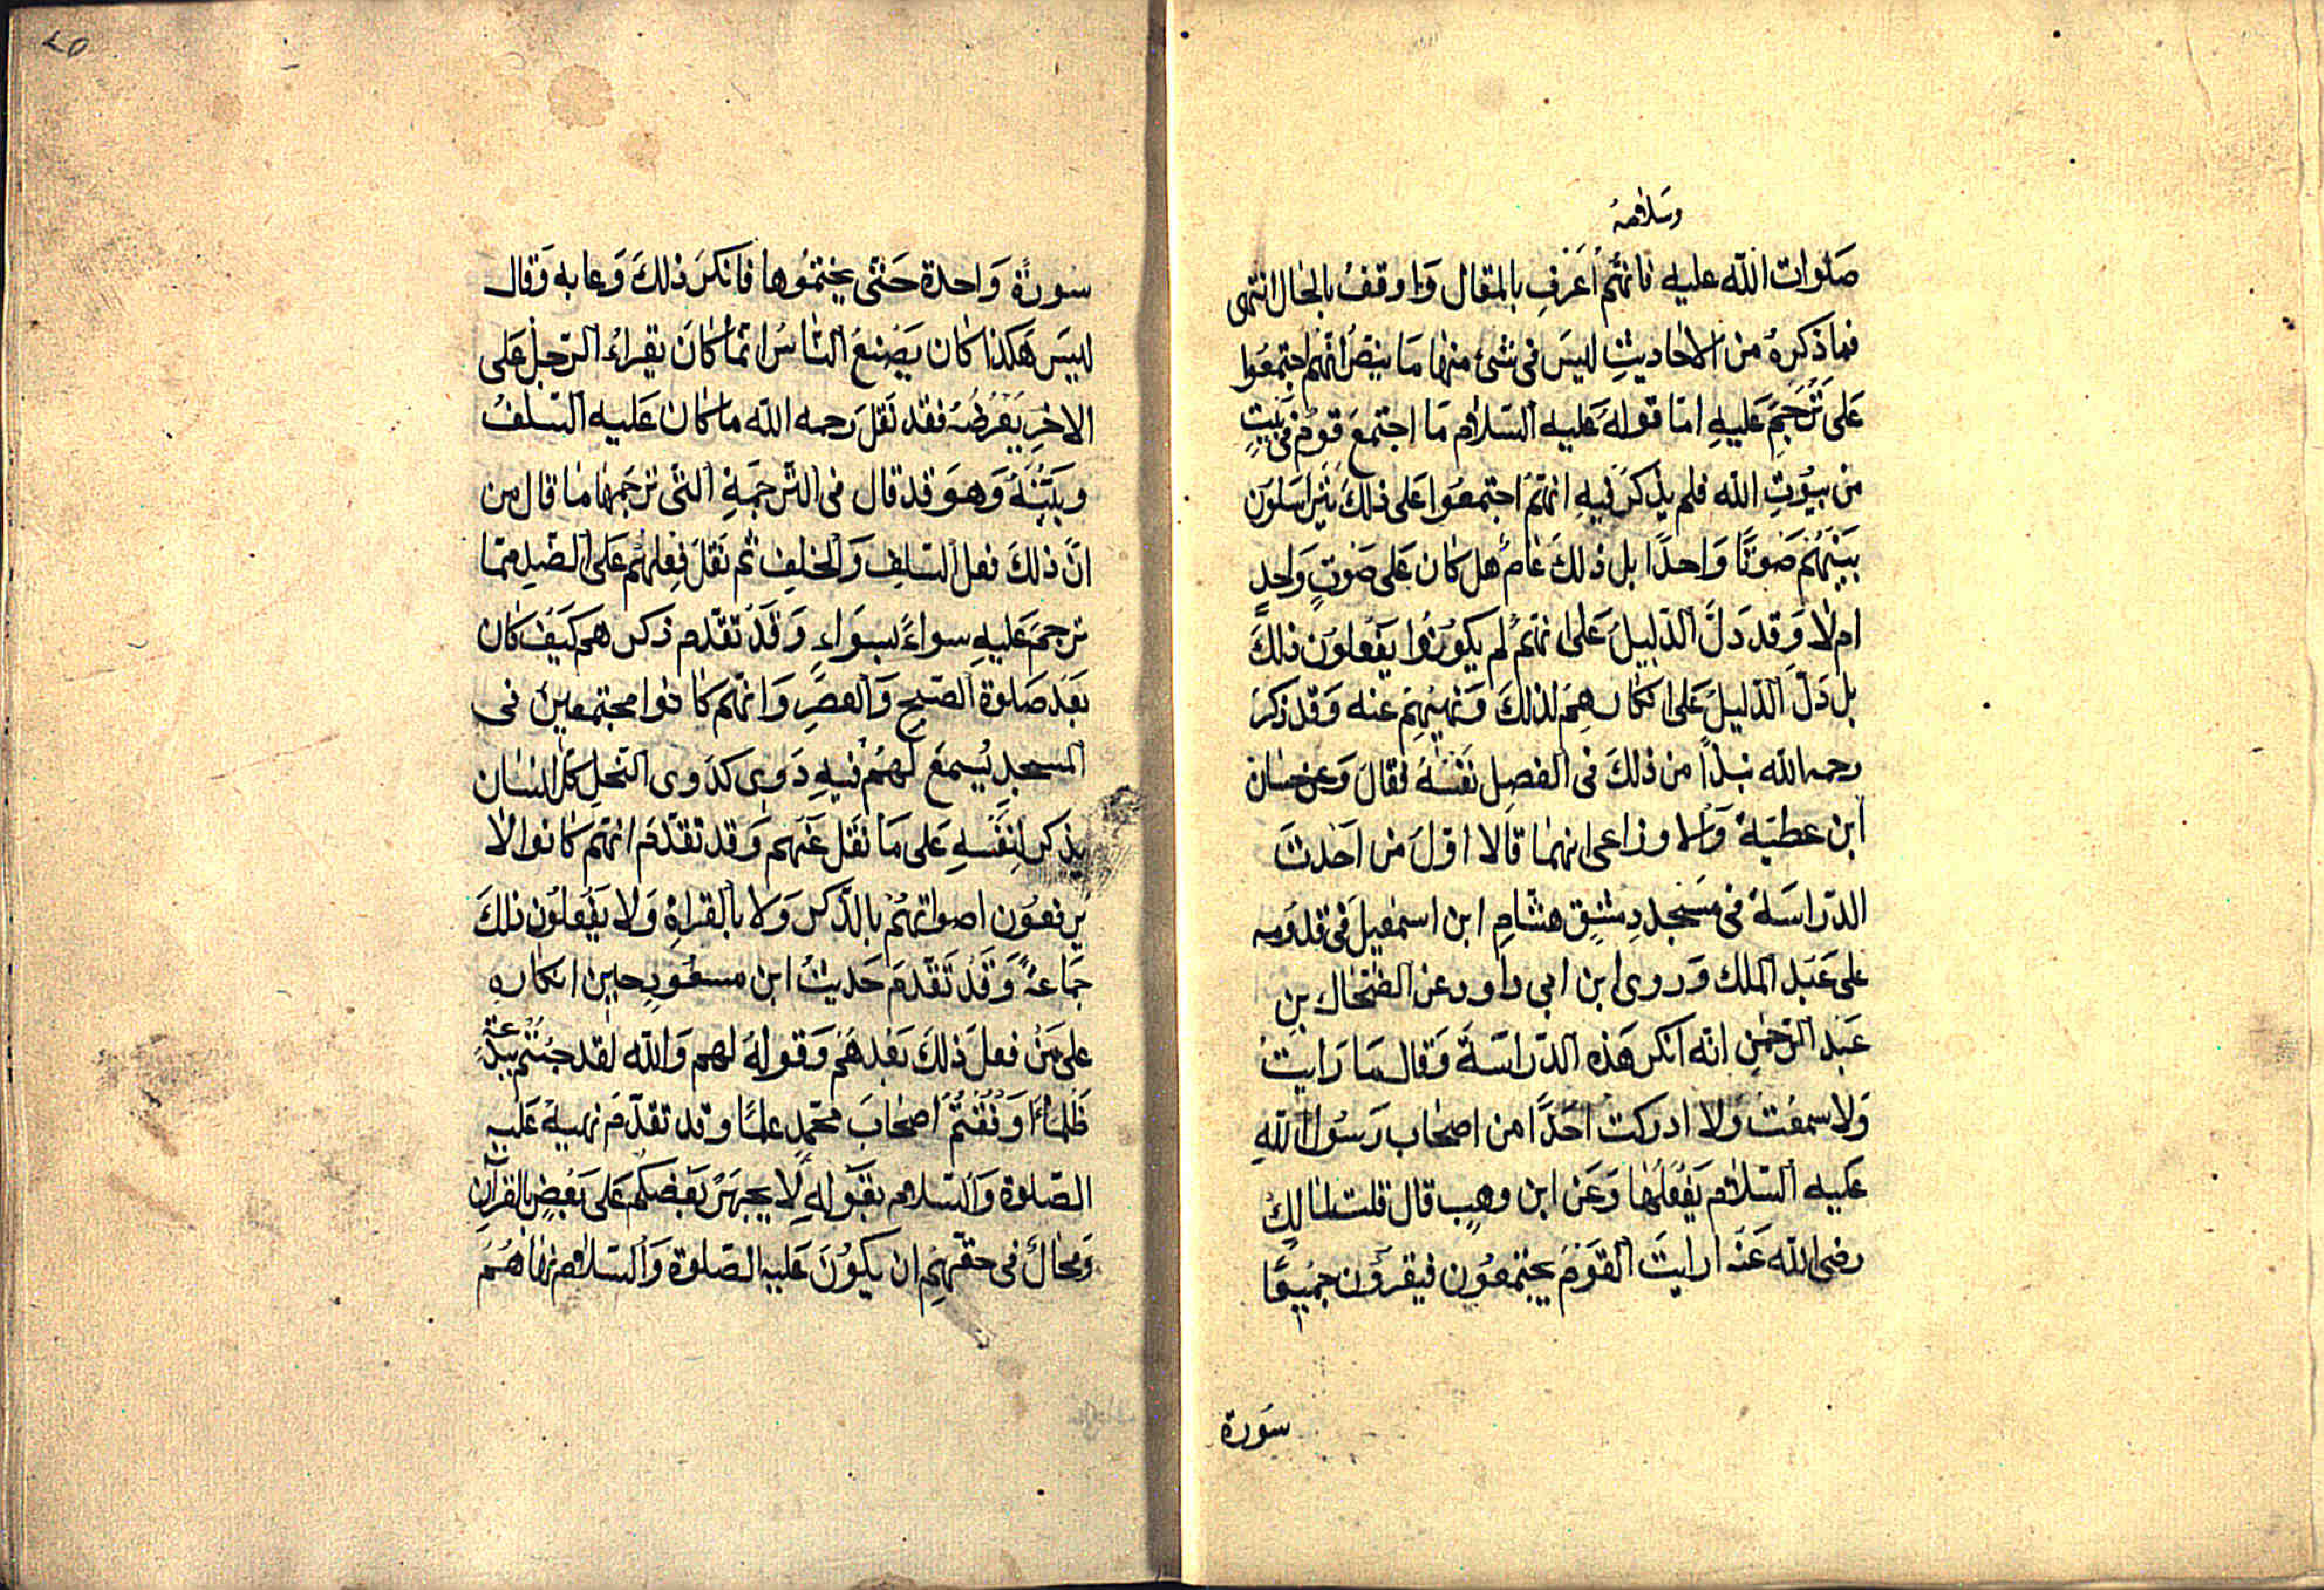 وسلامه
صلوات الله عليه فانهم اعرف بالمقال واوقف بالحال انتهى
فما ذكره من الاحاديث ليس فى شئ منها ما ينص انهم اجتمعوا
على ترجم عليه اما قوله عليه السلام ما اجتمع قوم فى بيت
من بيوت الله فلم يذكر فيه انهم اجتمعوا على ذلك يتراسلون
بينهم صوتا واحدا بل ذلك عام هل كان على صوت واحد
ام لا وقد دل الدليل على انهم لم يكونوا يفعلون ذلك
بل دل الدليل على انكارهم لذلك ونهيهم عنه وقد ذكر
رحمه الله نبذا من ذلك فى الفصل نفسه فقال وعن حسان
ابن عطية والاوزاعى انهما قالا اول من احدث
الدراسة فى مسجد دمشق هشام ابن اسمعيل فى قدومه
على عبد الملك وروى ابن ابى داود عن الضحاك بن
عبد الرحمن انه انكر هذه الدراسة وقال ما رايت
ولا سمعت ولا ادركت احدا من اصحاب رسول الله
عليه السلام يفعلها وعن ابن وهب قال قلت لمالك
رضى الله عنه ارايت القوم يجتمعون فيقرؤن جميعا
سورة
٤٥
سورة واحدة حتى يختموها فانكر ذلك وعابه وقال
ليس هكذا كان يصنع الناس انما كان يقراء الرجل على
الاخر يعرضه فقد نقل رحمه الله ما كان عليه السلف
وبينه وهو قد قال فى الترجمة التى ترجمها ما قال من
ان ذلك فعل السلف والخلف ثم نقل فعلهم على الضد مما
ترجم عليه سواء بسواء وقد تقدم ذكرهم كيف كان
بعد صلوة الصبح والعصر وانهم كانوا مجتمعين فى
المسجد يسمع لهم فيه دوى كدوى النحل كل انسان
يذكر لنفسه على ما نقل عنهم وقد تقدم انهم كانوا لا
يرفعون اصواتهم بالذكر ولا بالقراة ولا يفعلون ذلك
جماعة وقد تقدم حديث ابن مسعود حين انكاره
على من فعل ذلك بعدهم وقوله لهم والله لقد جئتم ببدعة
ظلماء او فقتم اصحاب محمد علما وقد تقدم نهيه عليه
الصلوة والسلام بقوله لا يجهر بعضكم على بعض بالقرآن
ومحال فى حقهم ان يكون عليه الصلوة والسلام نهاهم